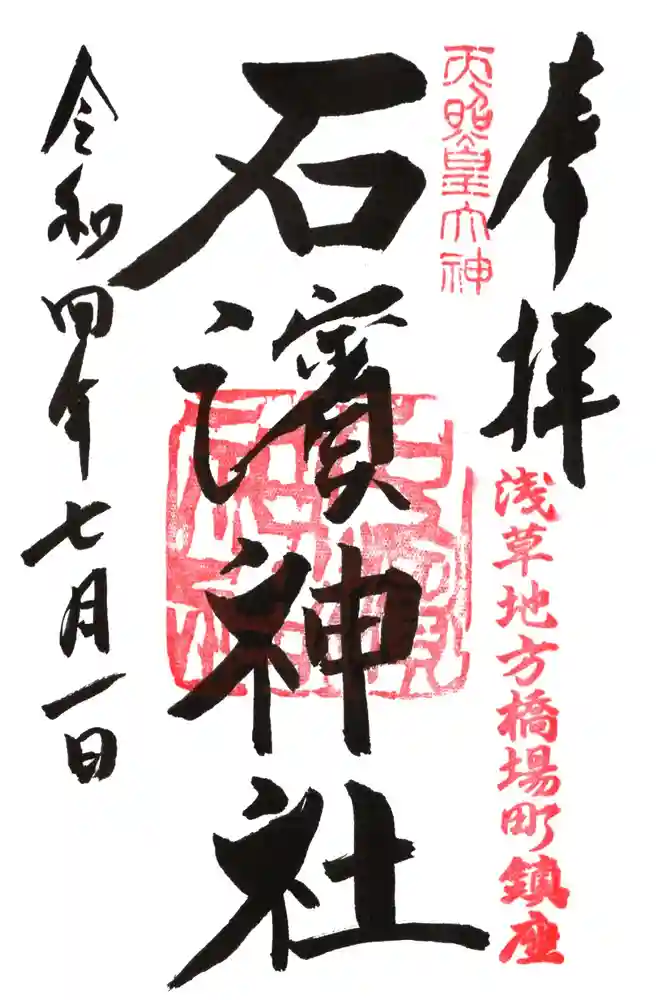 奉拝
浅草地方橋場町鎮座
天照皇大神
石濱神社
令和四年七月一日